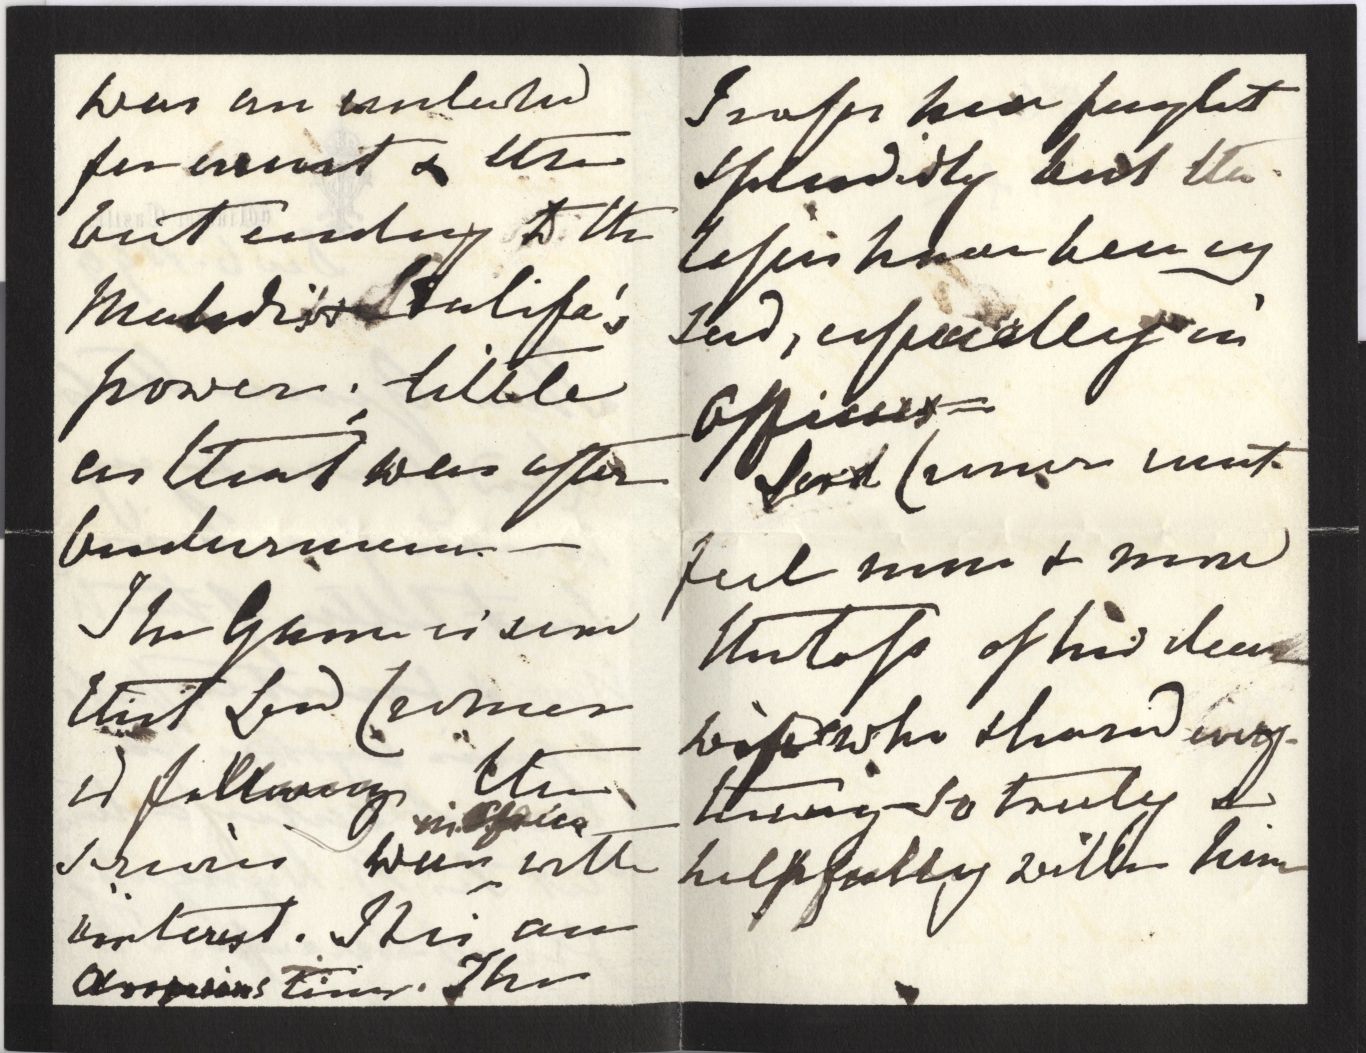 was an unlooked
for event & the
best ending to the
Mahdi's & Khalifa's
power; little
as that was after
Omdurman. —
The Queen is sure
that Lord Cromer
is following the
in Africa
serious war ^ with
interest. It is an
anxious time. The
Troops have fought
splendidly but the
losses have been very
sad, especially in
officers —
Lord Cromer must
feel more & more
the loss of his dear
wife who shared every-
thing so truly &
helpfully with him